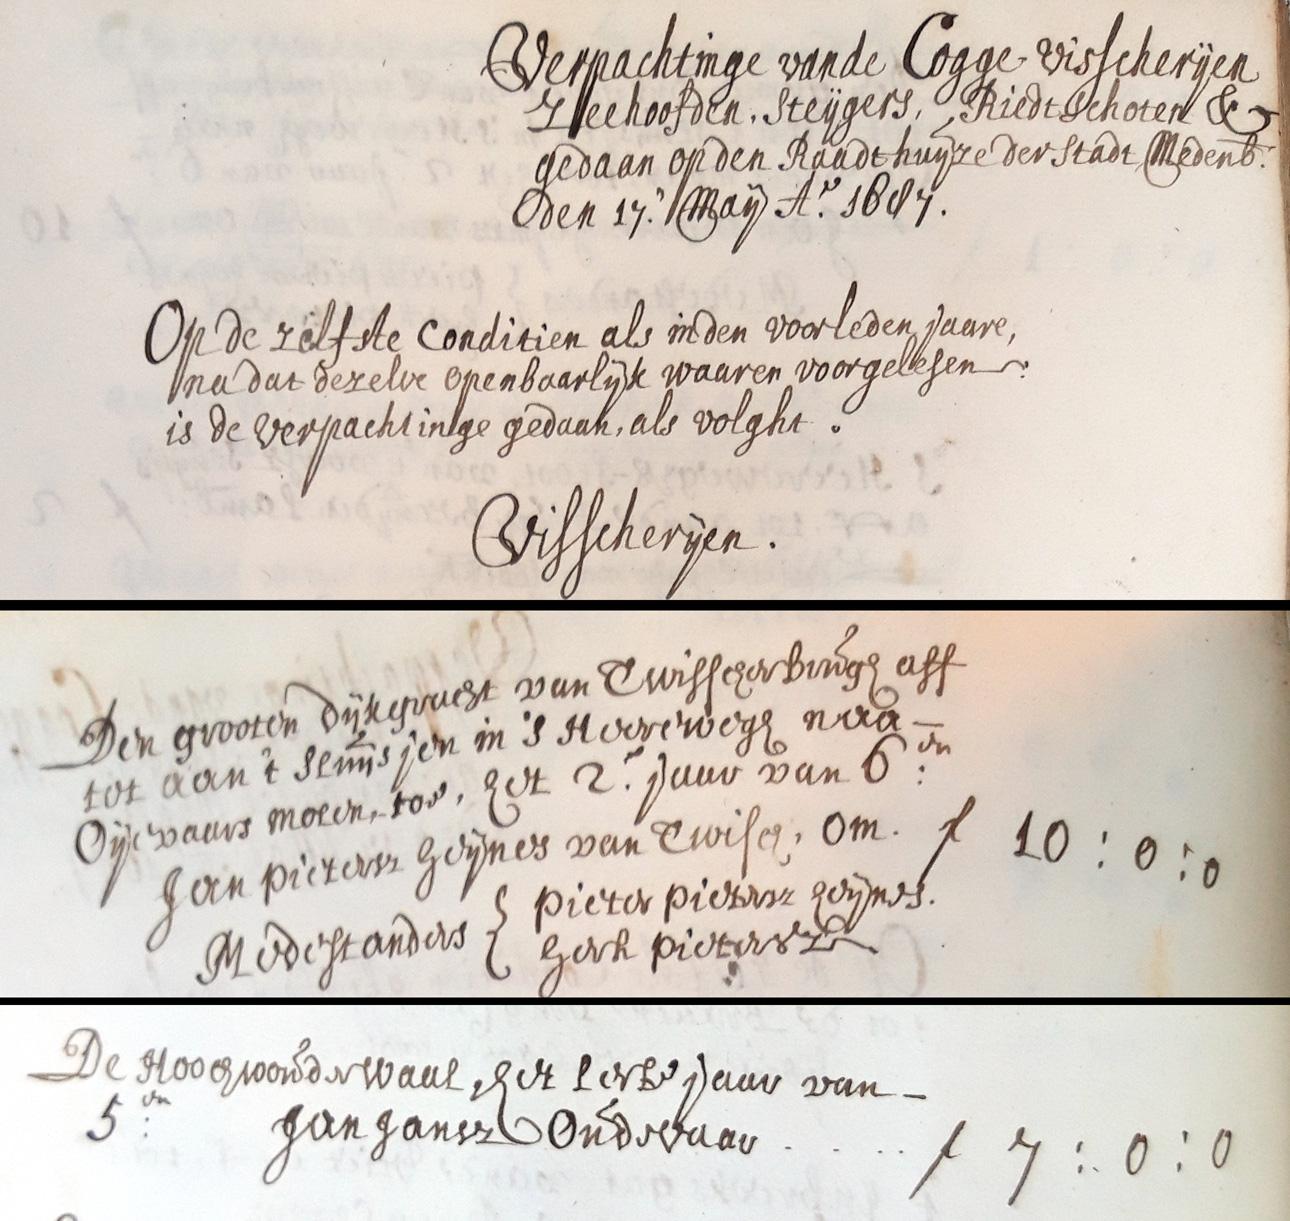 Verpachtinge vande Cogge visscherÿen
Zeehoofden, Steÿgers, Riedtschoten &
gedaan op den Raadthuÿze der Stadt Medenb:
den 17: Maÿ Aº 1687.
Op de zelfste Conditien als inden voorleden jaare,
na dat dezelve openbaarlÿk waaren voorgelesen
is de verpachtinge gedaan, als volght.
Visscherÿen.
Den grooten Dÿkgracht van Twisscherbrugh aff
tot aan 't Sluÿsjen in 's Heerewegh naa
Oÿevaars molen, toe, het 2e jaar van 6:en
Jan Pietersz Heÿnes van Twisch, om. f 10 : 0 : 0
Medestanders { Pieter Pietersz Heÿnes.
Gerk Pietersz
De Hooghwouder Waal, het eerste jaar van
5:en Jan Jansz Oudevaar . . . . f 7 : 0 : 0